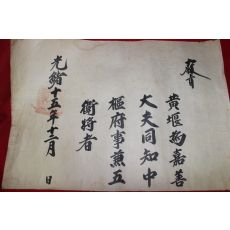 敎旨
黃堰爲嘉善
大夫同知中
樞府事兼五
衛將者
光緖十五年十二月 日